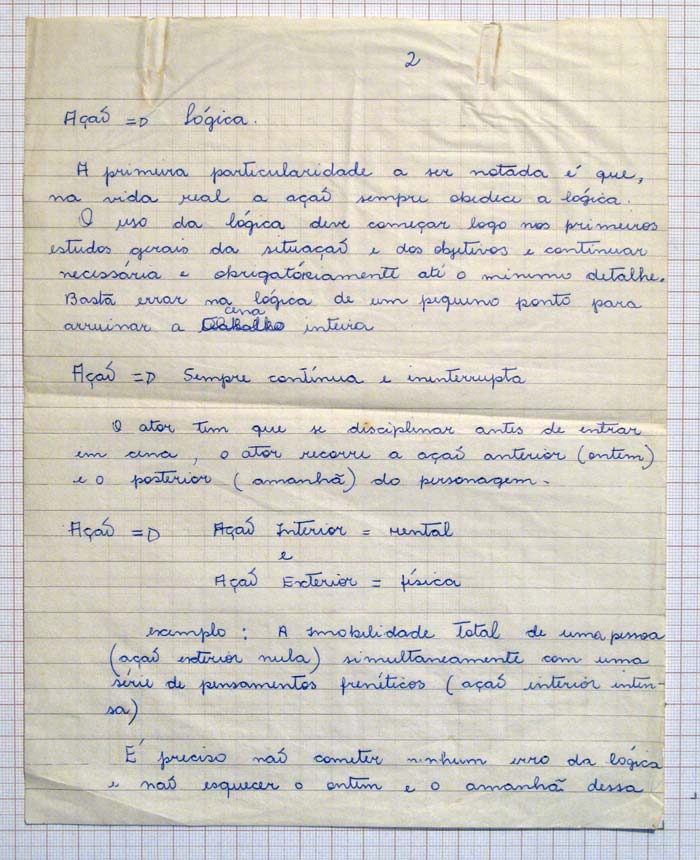 2
Ação => Lógica.
A primeira particularidade a ser notada é que,
na vida real a ação sempre obedece a lógica.
O uso da lógica deve começar logo nos primeiros
estudos gerais da situação e dos objetivos e continuar
necessária e obrigatóriamente até o minimo detalhe.
Basta errar na lógica de um pequeno ponto para
cena
arruinar a trabalho inteira
Ação => Sempre contínua e ininterrupta
O ator tem que se disciplinar antes de entrar
em cena, o ator recorre a ação anterior (ontem)
e o posterior (amanhã) do personagem.
Ação => Ação Interior = mental
e
Ação Exterior = física
exemplo: A imobilidade total de uma pessoa
(ação exterior nula) simultaneamente com uma
série de pensamentos frenéticos (ação interior inten-
sa)
É preciso não cometer ninhum erro da lógica
e não esquecer o ontem e o amanhã dessa